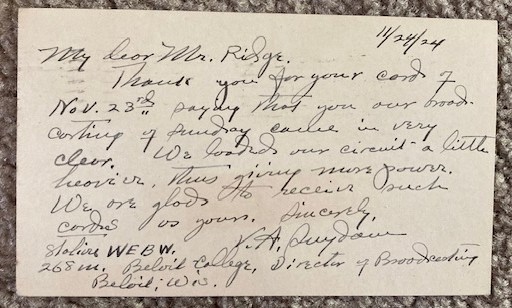 11/24/24
My dear Mr. Ridge.
Thank you for your card of
Nov. 23rd saying that you our broad-
casting of Sunday came in very
clear. We loaded our circuit a little
heavier, thus giving more power.
We are glad to receive such
cards as yours. Sincerely,
V. A. Suydam
Station WEBW. Director of Broadcasting
268 m. Beloit College,
Beloit, Wis.